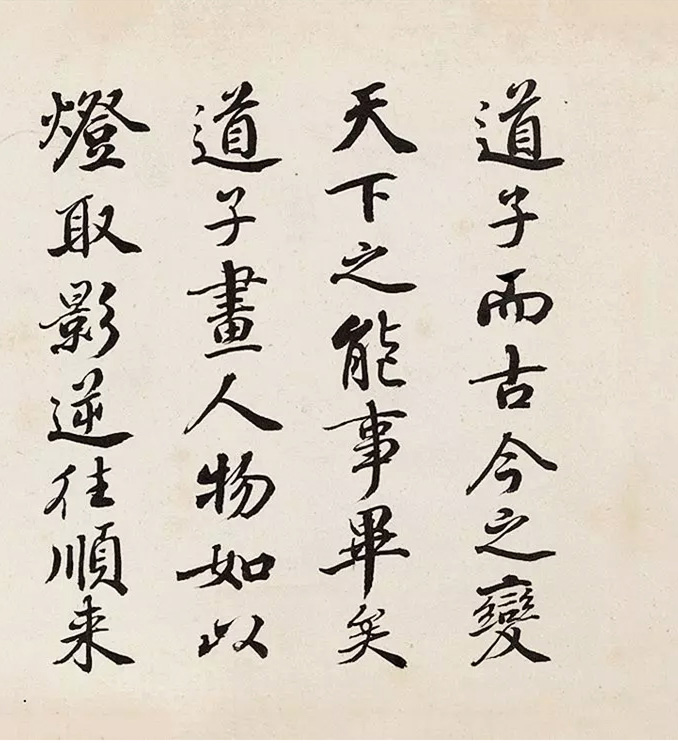 道子而古今之變
天下之能事畢矣
道子畫人物如以
燈取影逆往順来